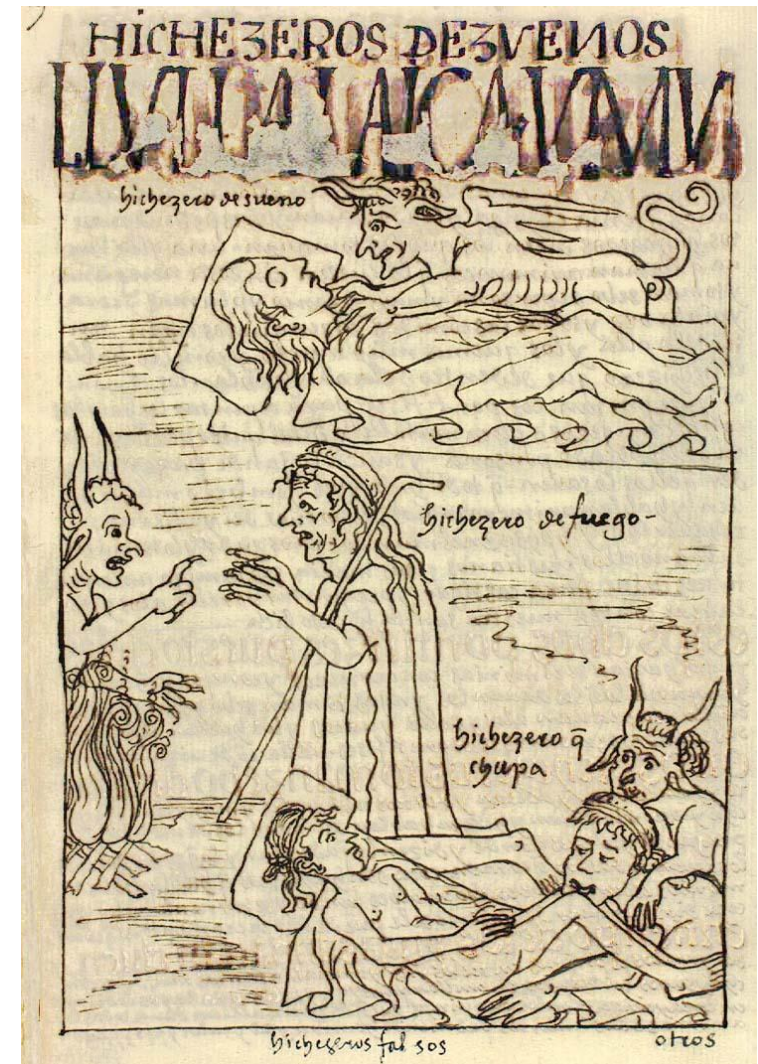 HICHEZEROS DE ZVENOS
LLVLLA LAICA VMV
hichezero de sueno
hichezero de fuego -
hichezero q̃
chupa
hichezeros fal sos
otros